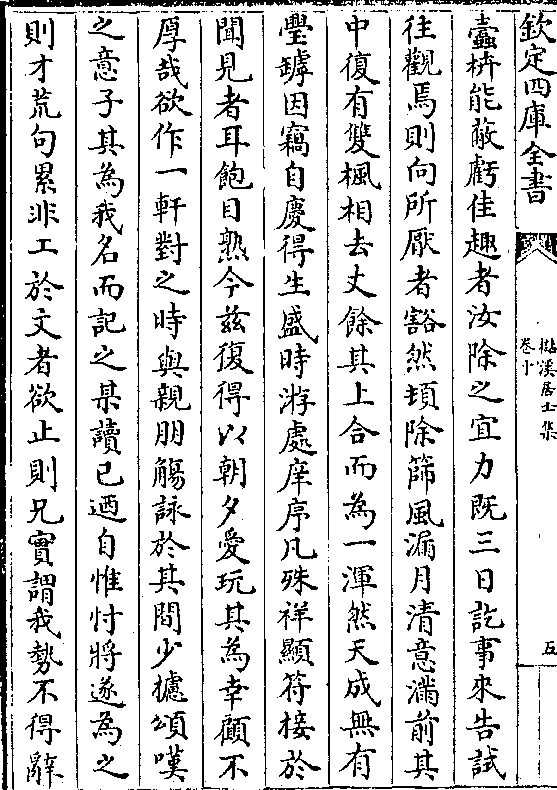 欽定四庫全書
㯊溪居士集
卷十
五
蠹枿能蔽虧佳趣者汝除之宜力既三日訖事來告試
往觀焉則向所厭者豁然頓除篩風漏月清意滿前其
中復有雙楓相去丈餘其上合而為一渾然天成無有
璺罅因竊自慶得生盛時游處庠序凡殊祥顯符接於
聞見者耳飽目熟今茲復得以朝夕愛玩其為幸顧不
厚哉欲作一軒對之時與親朋觴詠於其間少攄頌嘆
之意子其為我名而記之某讀已迺自惟忖將遂為之
則才荒句累非工於文者欲止則兄實謂我勢不得辭